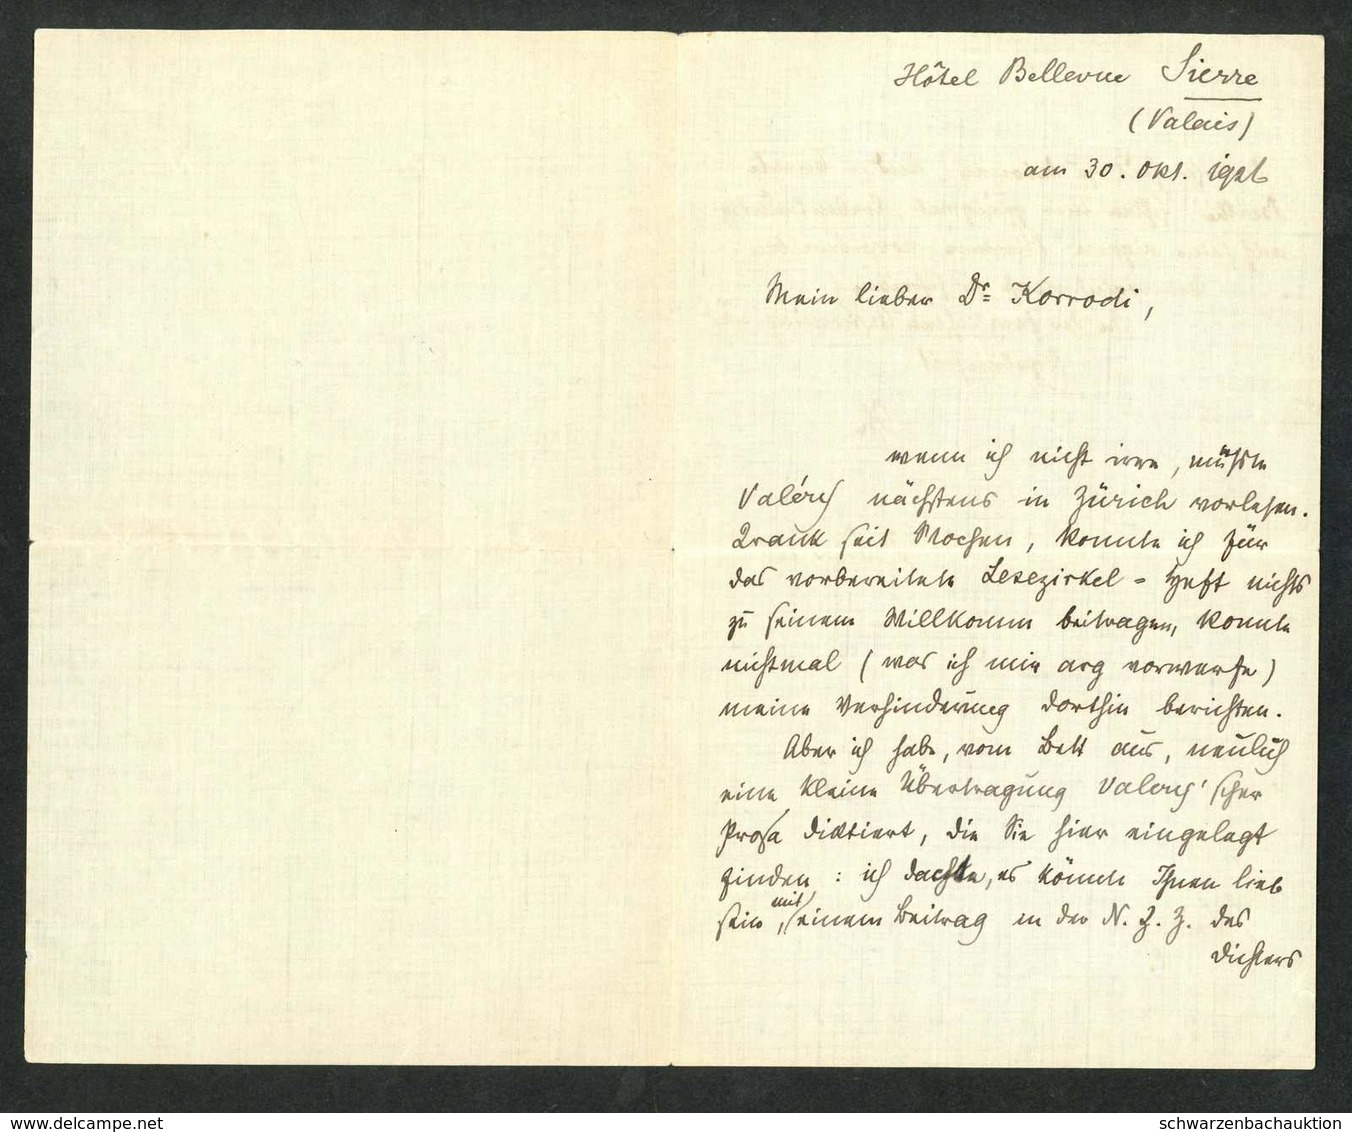 Hôtel Bellevue Sierre
(Valais)
am 30. Okt. 1926
Mein lieber Dr. Korrodi,
wenn ich nicht irre, müsste
Valéry nächstens in Zürich vorlesen.
Krank seit Wochen, konnte ich für
das vorbereitete Lesezirkel-Heft nichts
zu seinem Willkomm beitragen, konnte
nichtmal (was ich mir arg vorwerfe)
meine Verhinderung dorthin berichten.
Aber ich habe, vom Bett aus, neulich
eine kleine Übertragung Valéry'scher
Prosa diktiert, die Sie hier eingelegt
finden: ich dachte, es könnte Ihnen lieb
sein, mit einem Beitrag in der N. Z. Z. des
Dichters
delcampe.net
schwarzenbachauktion